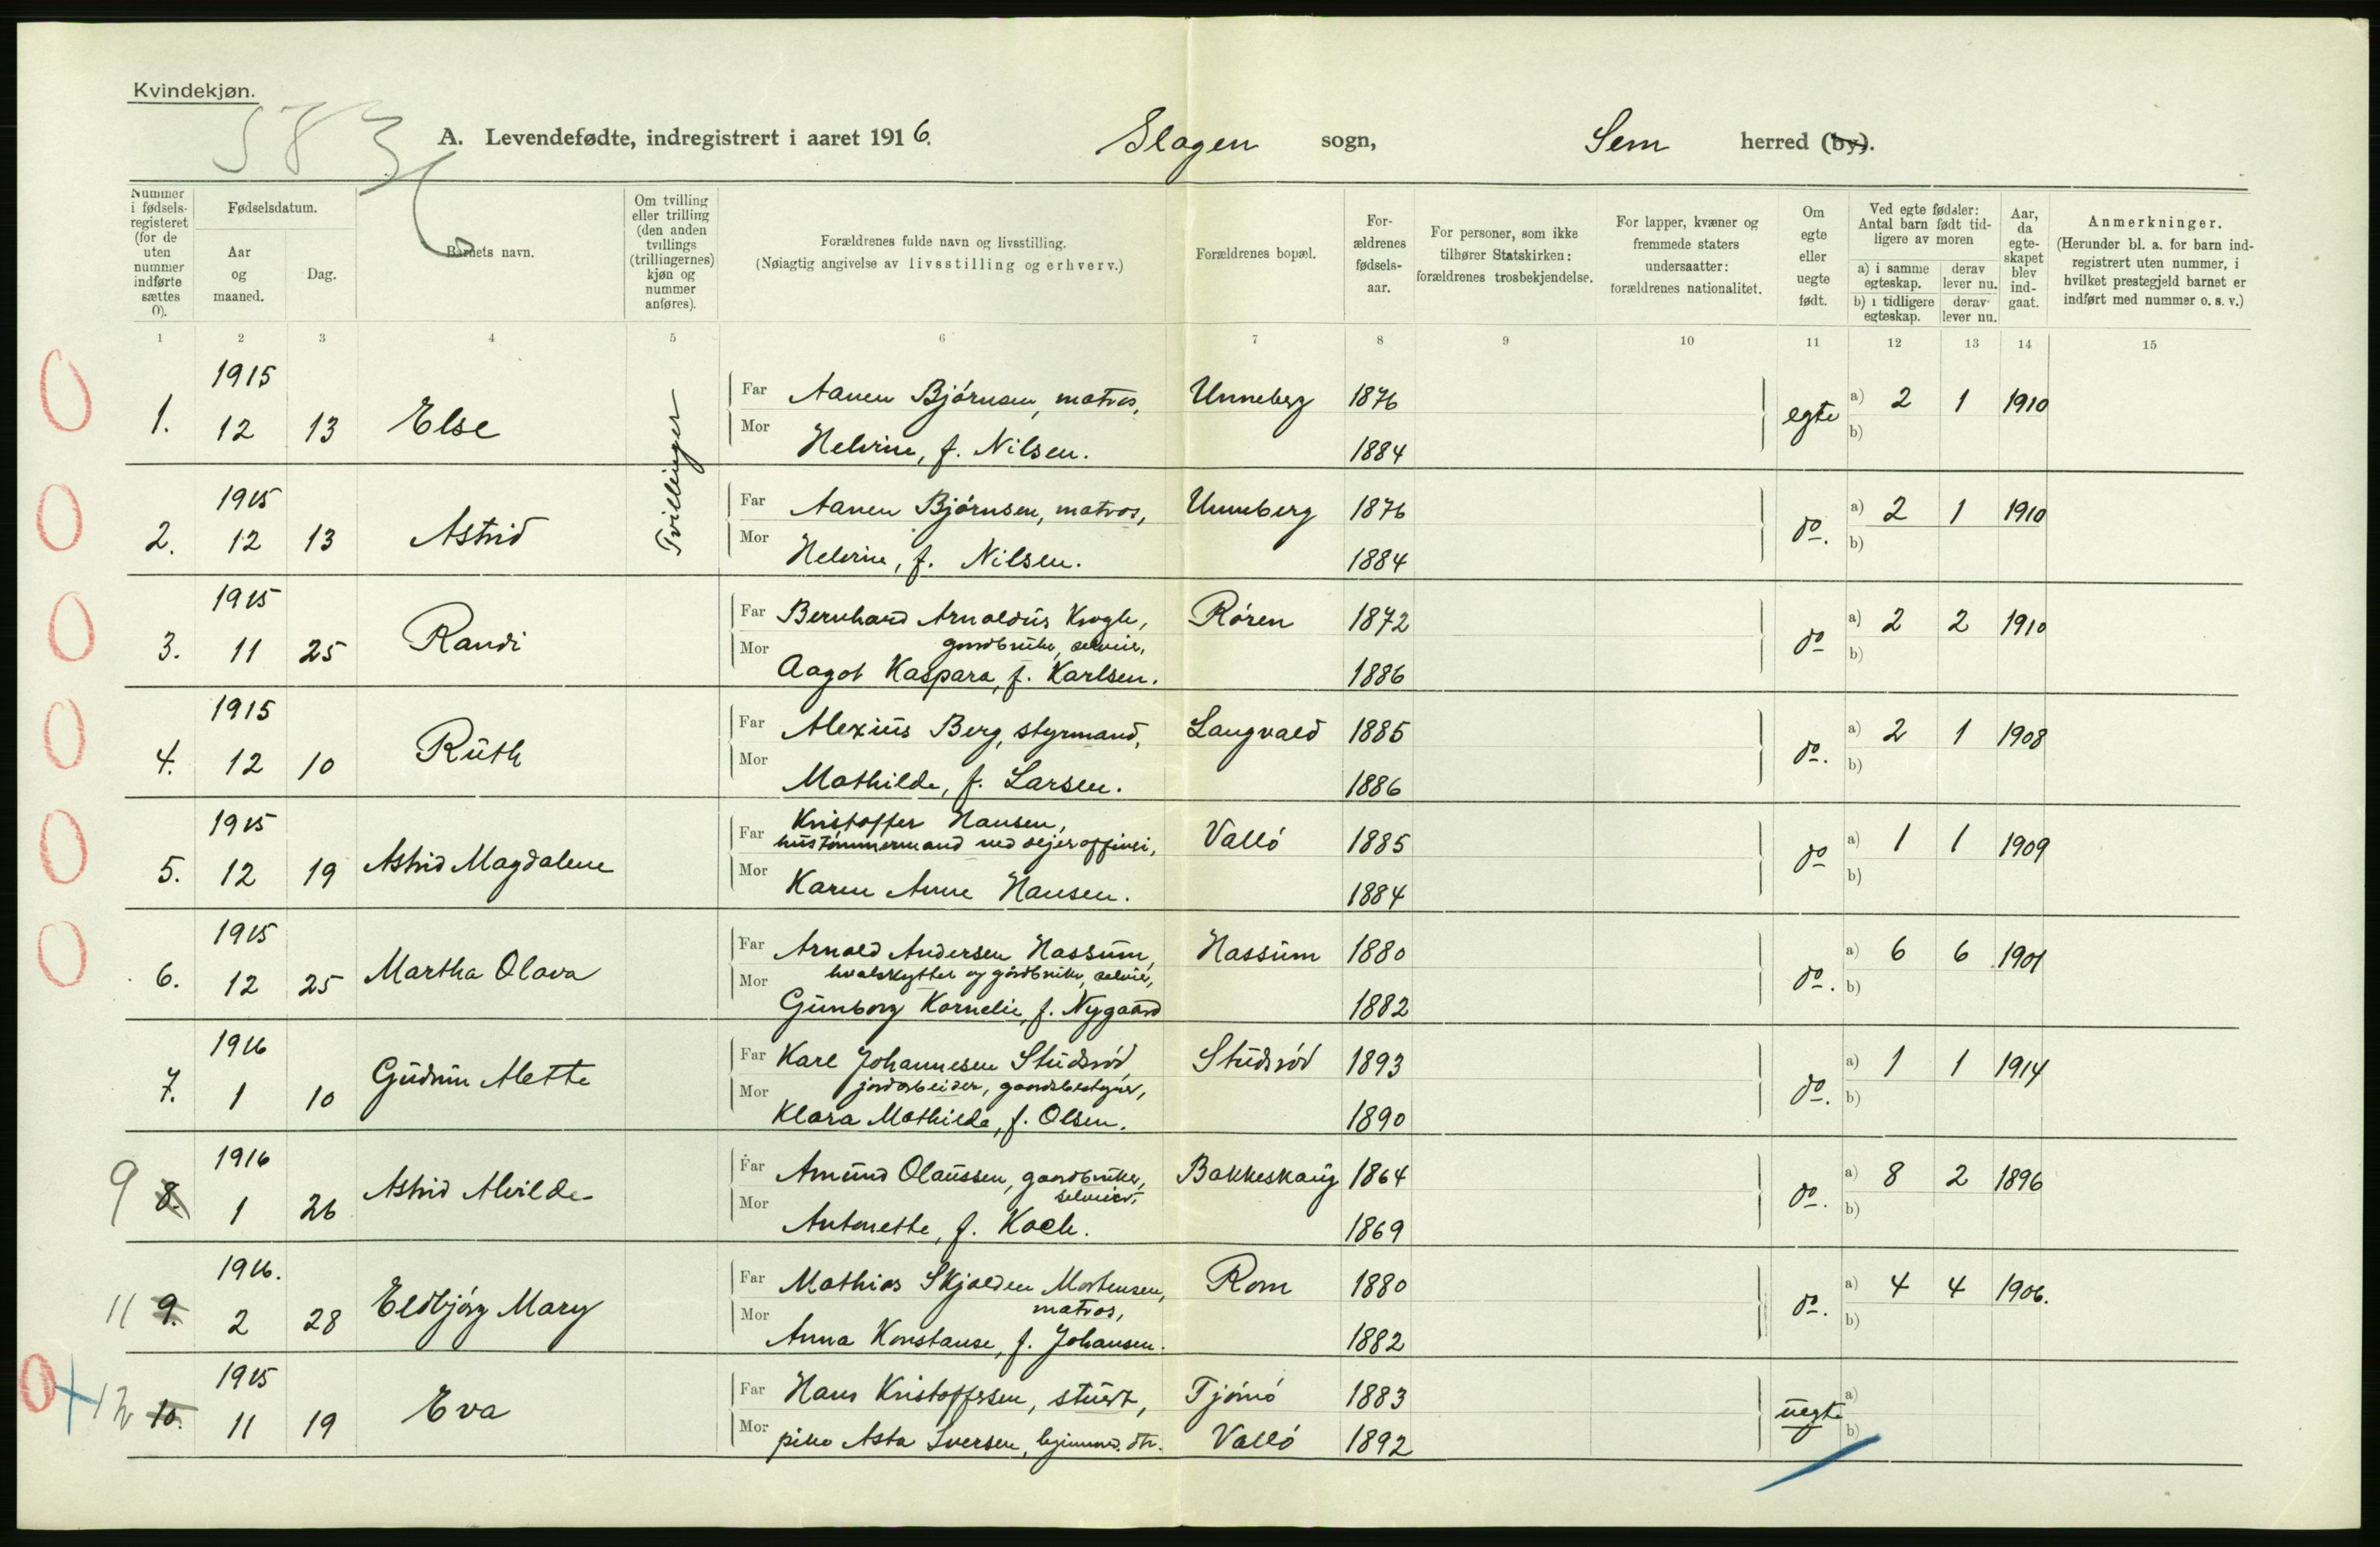 Kvindekjøn.
5836
A. Levendefødte, indregistrert i aaret 1916. Slagen sogn, Sem herred (by).
Nummer i fødsels-registeret (for de uten nummer indførte sættes 0).
Fødselsdatum.
Aar og maaned.
Dag.
Barnets navn.
Om tvilling eller trilling (den anden tvillings (trillingernes) kjøn og nummer anføres).
Forældrenes fulde navn og livsstilling.
(Nøiagtig angivelse av livsstilling og erhverv.)
Forældrenes bopæl.
For-ældrenes fødsels-aar.
For personer, som ikke tilhører Statskirken: forældrenes trosbekjendelse.
For lapper, kvæner og fremmede staters undersaatter: forældrenes nationalitet.
Om egte eller uegte født.
Ved egte fødsler: Antal barn født tid-ligere av moren
a) i samme egteskap. derav lever nu.
b) i tidligere egteskap. derav lever nu.
Aar, da egte-skapet blev ind-gaat.
Anmerkninger.
(Herunder bl. a. for barn ind-registrert uten nummer, i hvilket prestegjeld barnet er indført med nummer o. s. v.)
1 2 3 4 5 6 7 8 9 10 11 12 13 14 15
0 1. 1915 12 13 Else Tvillinger
Far Aanen Bjørnsen, matros, Unneberg 1876 egte a) 2 1 1910
Mor Helvine, f. Nilsen. 1884 b)
0 2. 1915 12 13 Astrid
Far Aanen Bjørnsen, matros, Unneberg 1876 do. a) 2 1 1910
Mor Helvine, f. Nilsen. 1884 b)
0 3. 1915 11 25 Randi
Far Bernhard Arnoldus Krogh, Røren 1872 do a) 2 2 1910
gaardbruker, selveier,
Mor Aagot Kaspara, f. Karlsen. 1886 b)
0 4. 1915 12 10 Ruth
Far Alexius Berg, styrmand, Langvald 1885 do. a) 2 1 1908
Mor Mathilde, f. Larsen. 1886 b)
0 5. 1915 12 19 Astrid Magdalene
Far Kristoffer Hansen, Valló 1885 do a) 1 1 1909
hustømmermand ved
Mor Karen Anne Hansen. 1884 b)
0 6. 1915 12 25 Martha Olava
Far Arnold Andersen Hassum, Hassum 1880 do. a) 6 6 1901
hvalskytter og gårdbruker, selveier,
Mor Gunborg Kornelie, f. Nygaard 1882 b)
7. 1916 1 10 Gudrun Alette
Far Karl Johannesen Studsrød, Studsrød 1893 do. a) 1 1 1914
jordarbeider, gaardsbestyrer,
Mor Klara Mathilde, f. Olsen. 1890 b)
9 8. 1916 1 26 Astrid Alvilde
Far Amund Olaussen, gaardbruker, Bakkeskaug 1864 do. a) 8 2 1896
selveier,
Mor Antonette, f. Koch. 1869 b)
11 9. 1916. 2 28 Eldbjørg Mary
Far Mathias Skjalden Mortensen, Rom 1880 do. a) 4 4 1906.
matros,
Mor Anna Konstanse, f. Johansen. 1882 b)
0 12 10. 1915 11 19 Eva
Far Hans Kristoffersen, stuert, Tjømø 1883 uegte a)
Mor pike Asta Iversen, hjemmev. dtr. Valló 1892 b)